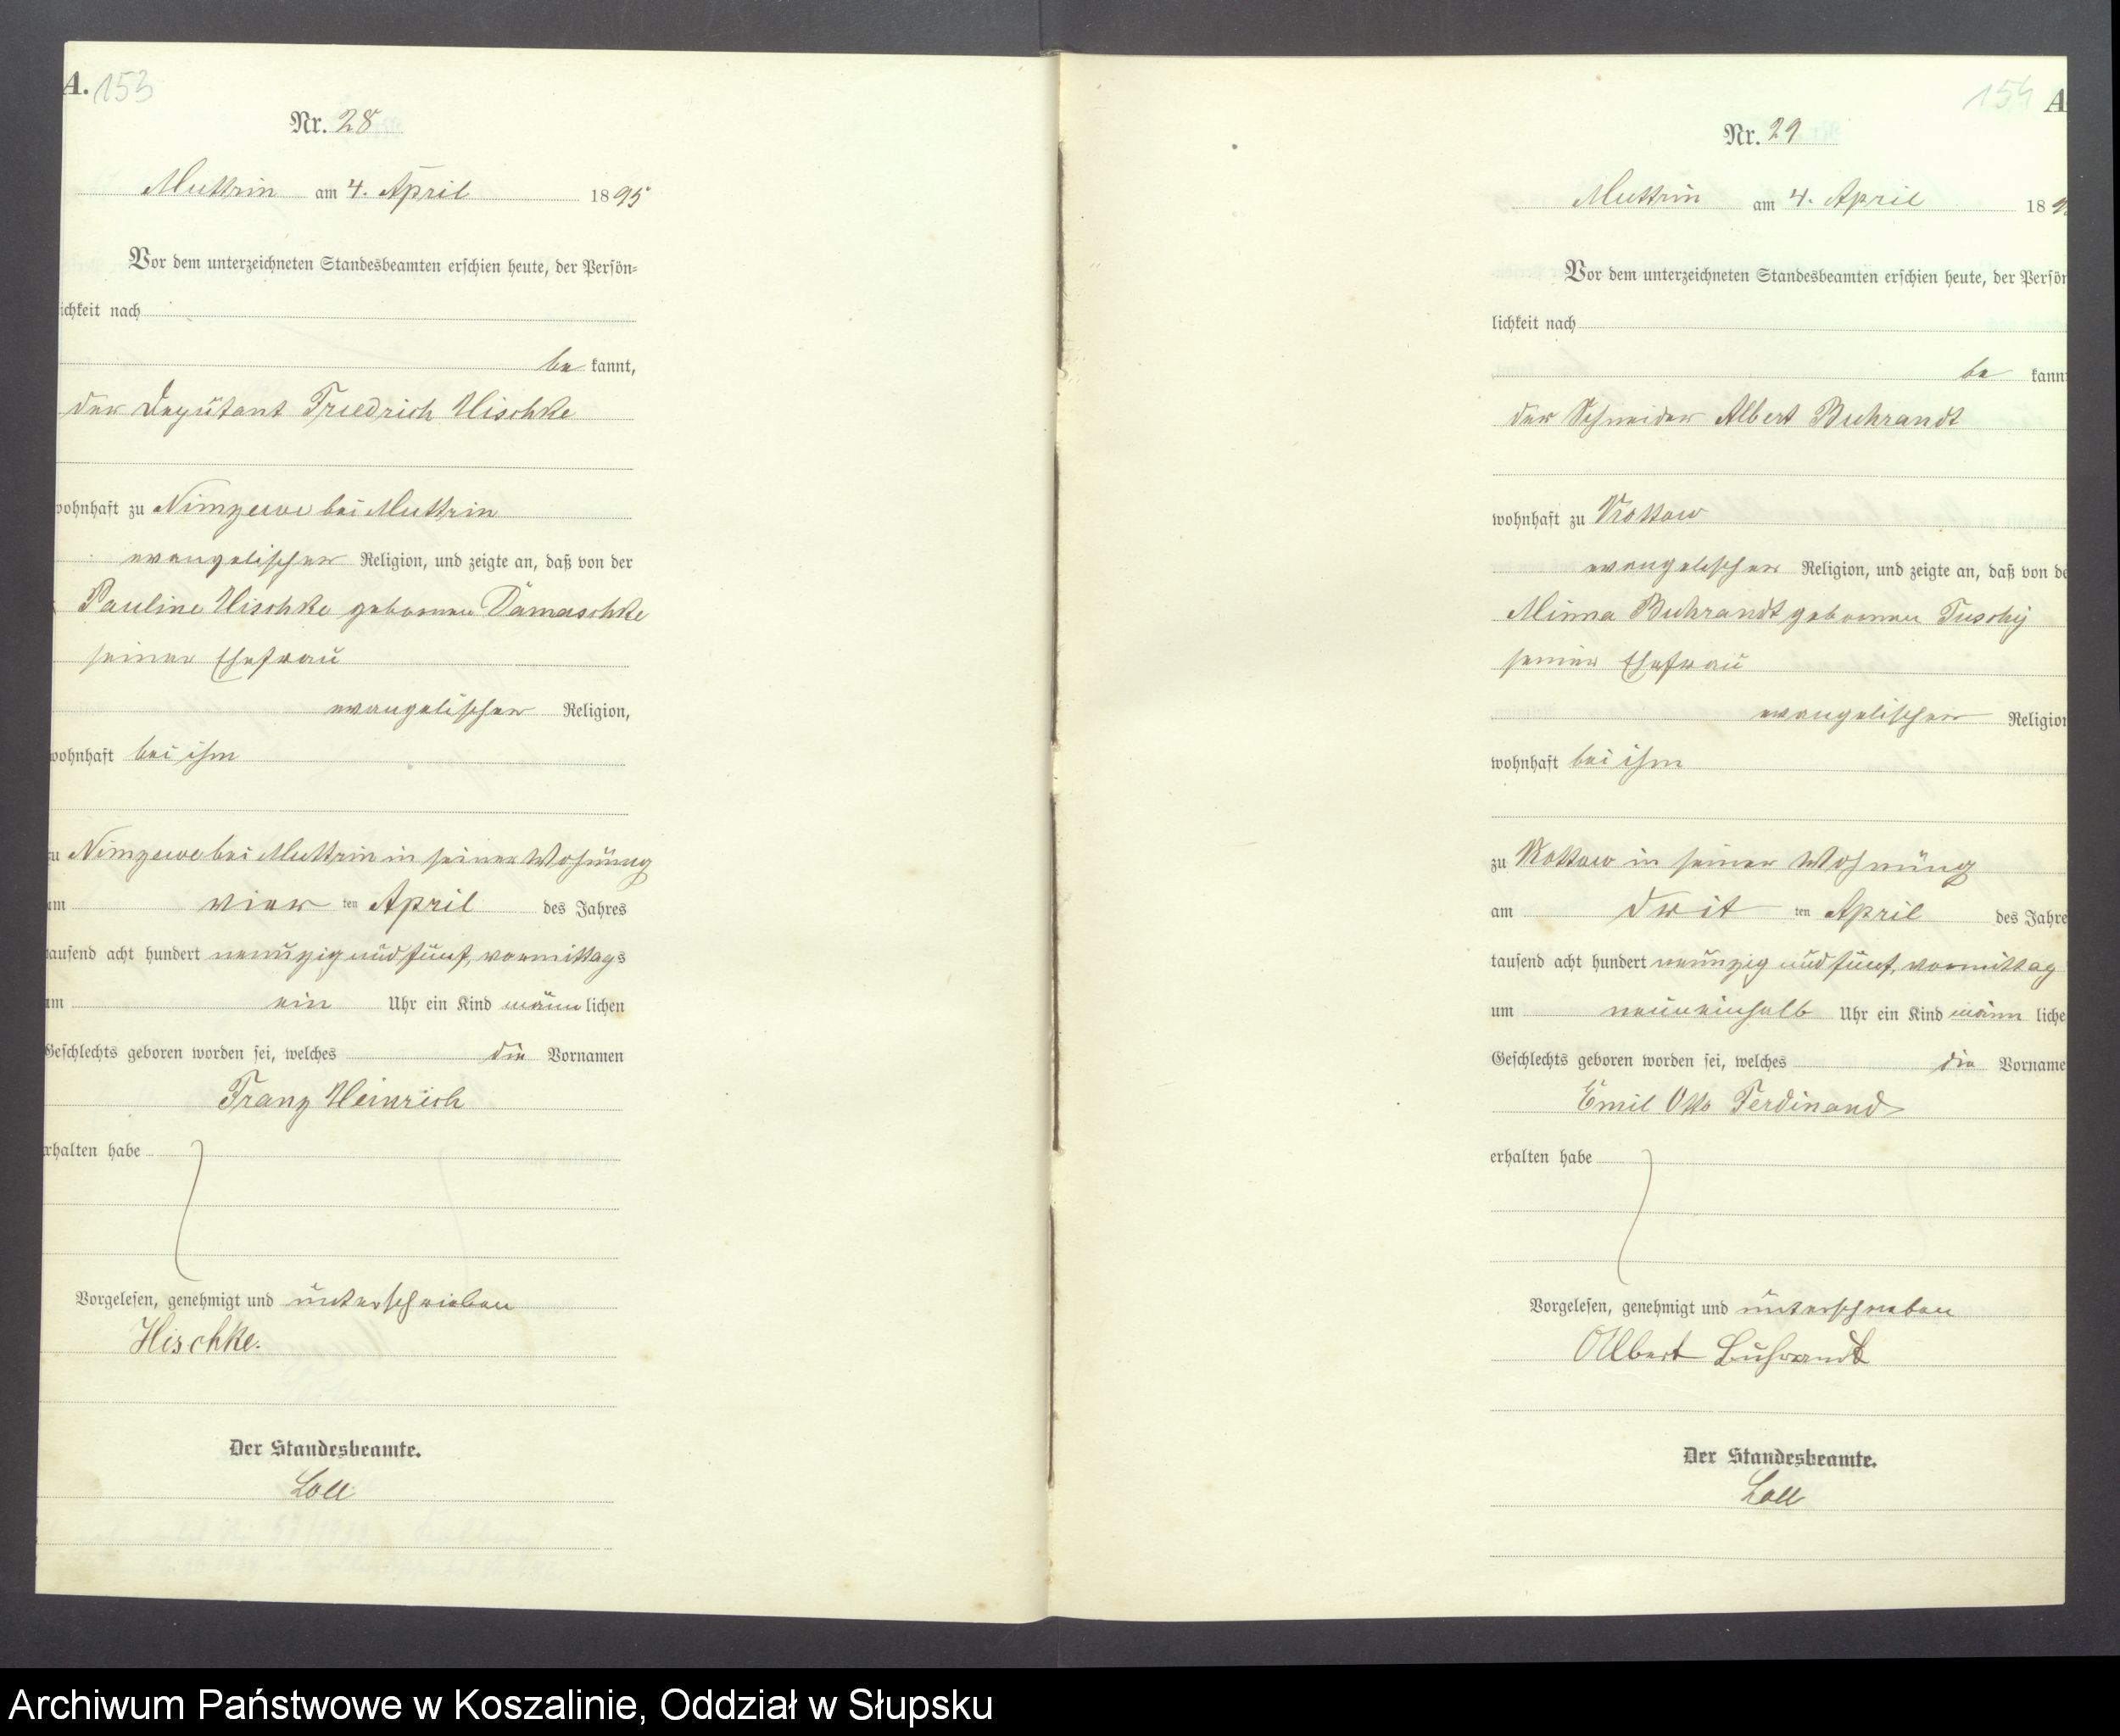 A. 153
Nr. 28
Muttrin am 4. April 1895
Vor dem unterzeichneten Standesbeamten erschien heute, der Persön-
ichkeit nach
be kannt,
der Deputant Friedrich Hischke
wohnhaft zu Nimzewe bei Muttrin
evangelischer Religion, und zeigte an, daß von der
Pauline Hischke geborenen Damaschke
seiner Ehefrau
evangelischer Religion,
wohnhaft bei ihm
zu Nimzewe bei Muttrin in seiner Wohnung
am vier ten April des Jahres
tausend acht hundert neunzig und fünf, vormittags
um ein Uhr ein Kind männ lichen
Geschlechts geboren worden sei, welches die Vornamen
Franz Heinrich
erhalten habe
Vorgelesen, genehmigt und unterschrieben
Hischke.
Der Standesbeamte.
Loll
154 A
Nr. 29
Muttrin am 4. April 189
Vor dem unterzeichneten Standesbeamten erschien heute, der Persön
lichkeit nach
be kannt
der Schneider Albert Buhrandt
wohnhaft zu Kottow
evangelischer Religion, und zeigte an, daß von de
Minna Buhrandt geborenen Tuschy
seiner Ehefrau
evangelischer Religion
wohnhaft bei ihm
zu Kottow in seiner Wohnung
am drit ten April des Jahre
tausend acht hundert neunzig und fünf, vormittag
um neuneinhalb Uhr ein Kind männ liche
Geschlechts geboren worden sei, welches die Vorname
Emil Otto Ferdinand
erhalten habe
Vorgelesen, genehmigt und unterschrieben
Albert Buhrandt
Der Standesbeamte.
Loll
Archiwum Państwowe w Koszalinie, Oddział w Słupsku